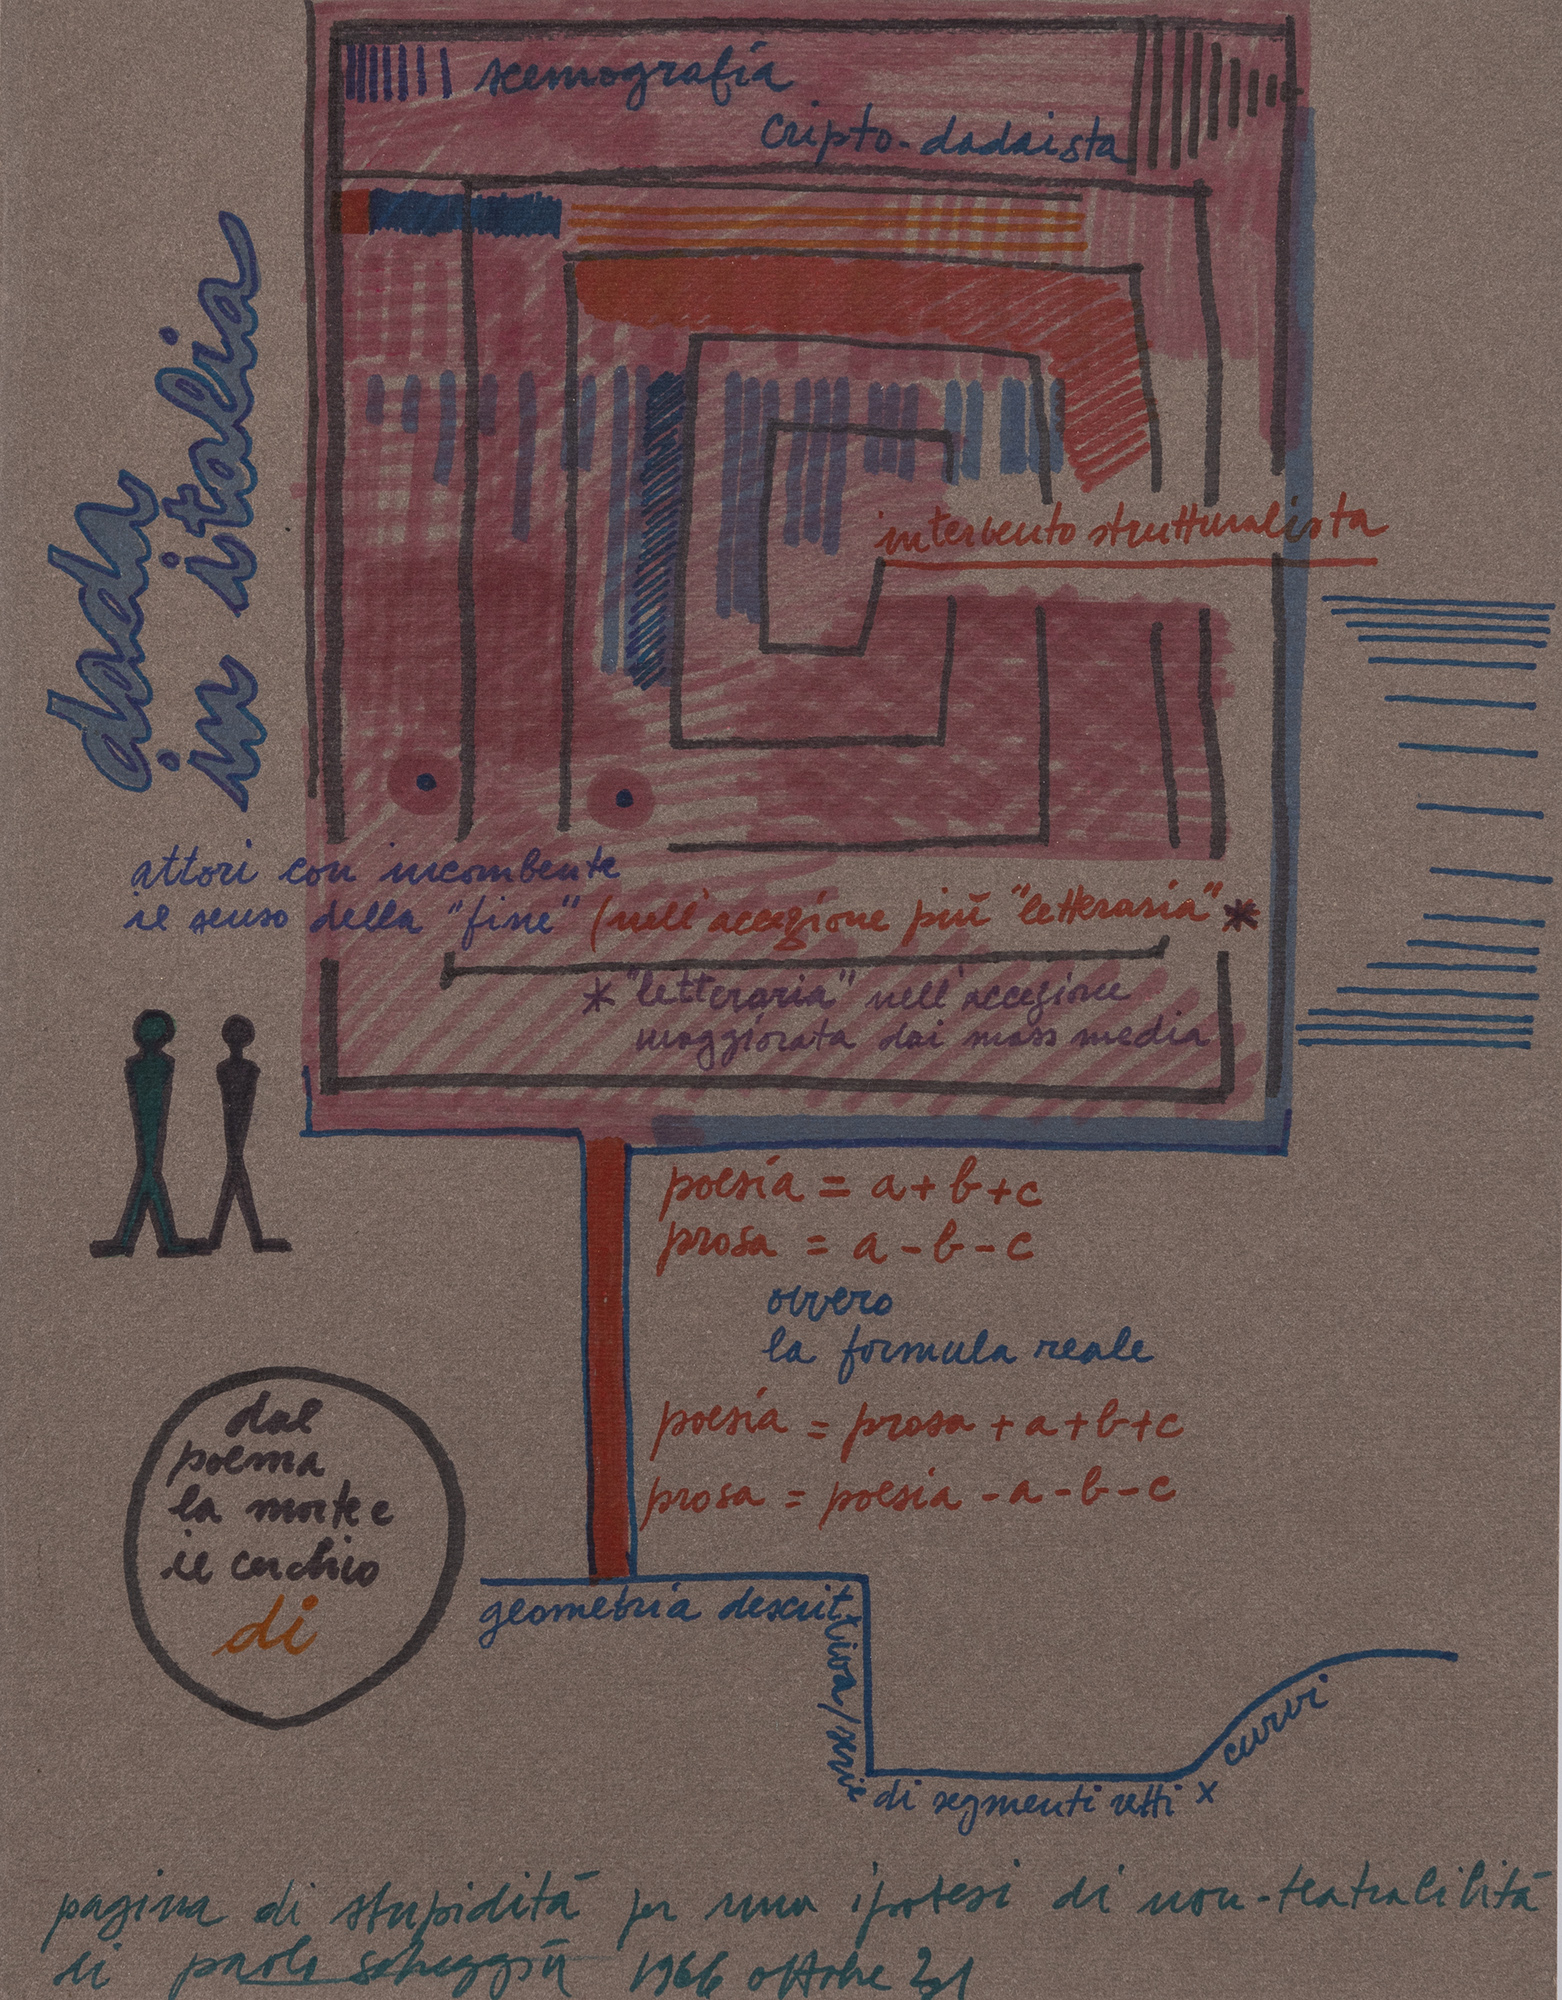 scenografia
cripto-dadaista
dada
in italia
intervento strutturalista
attori con incombente
il senso della "fine" (nell'accezione più "letteraria" *
* "letteraria" nell'accezione
maggiorata dai mass media
poesia = a + b + c
prosa = a - b - c
ovvero
la formula reale
poesia = prosa + a + b + c
prosa = poesia - a - b - c
dal
poema
la morte e
il cerchio
di
geometria descrittiva / serie
di segmenti retti x curvi
pagina di stupidità per una ipotesi di non-teatralibità
di paolo scheggi 1966 ottobre